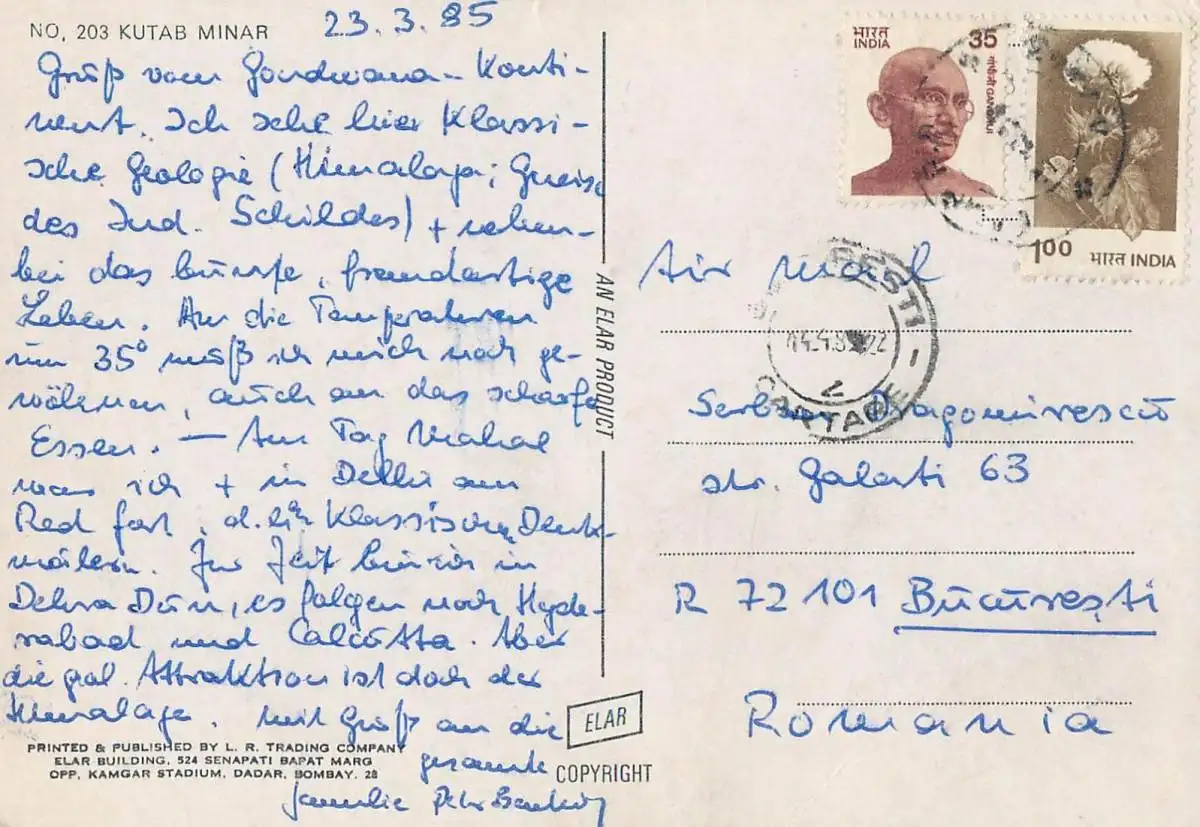 NO. 203 KUTAB MINAR
23.3.85
Gruß vom Gondwana-Konti-
nent. Ich sehe hier klassi-
sche Geologie (Himalaya; Gneise
des Ind. Schildes) + neben-
bei das bunte, fremdartige
Leben. An die Temperaturen
um 35° muß ich mich noch ge-
wöhnen, auch an das scharfe
Essen. — Am Tag Mahal
war ich + in Delhi am
Red fort, d. klassischen Denk-
mälern. Zur Zeit bin ich in
Dehra Dun, es folgen noch Hyde-
rabad und Calcutta. Aber
die Attraktion ist doch der
Himalaya. Mit Gruß an die
gesamte
Familie Peter
PRINTED & PUBLISHED BY L. R. TRADING COMPANY
ELAR BUILDING, 524 SENAPATI BAPAT MARG
OPP, KAMGAR STADIUM, DADAR, BOMBAY. 28
AN ELAR PRODUCT
ELAR
COPYRIGHT
भारत
INDIA
35
गांधीजी GANDHIJI
1.00
भारत INDIA
14.4.8
CARTARE
Air mail
Serban Dragomirescu
str. Galati 63
R 72101 Bucureşti
Romania